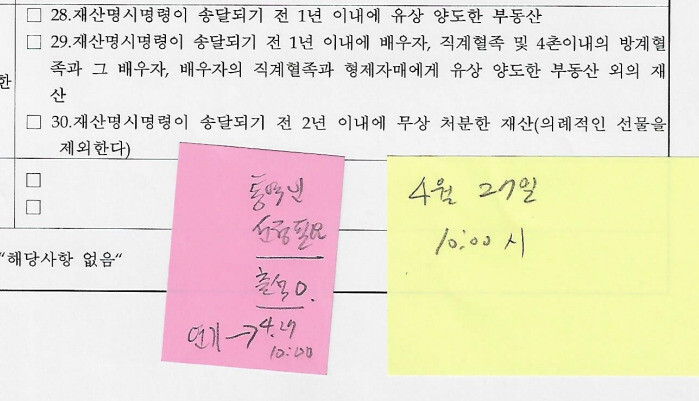 □ 28.재산명시명령이 송달되기 전 1년 이내에 유상 양도한 부동산
□ 29.재산명시명령이 송달되기 전 1년 이내에 배우자, 직계혈족 및 4촌이내의 방계혈
족과 그 배우자, 배우자의 직계혈족과 형제자매에게 유상 양도한 부동산 외의 재
한
산
□ 30.재산명시명령이 송달되기 전 2년 이내에 무상 처분한 재산(의례적인 선물을
제외한다)
□
□
"해당사항 없음"
통역인
선정필요
출석 O.
연기→4.27
10:00
4월 27일
10:00 시